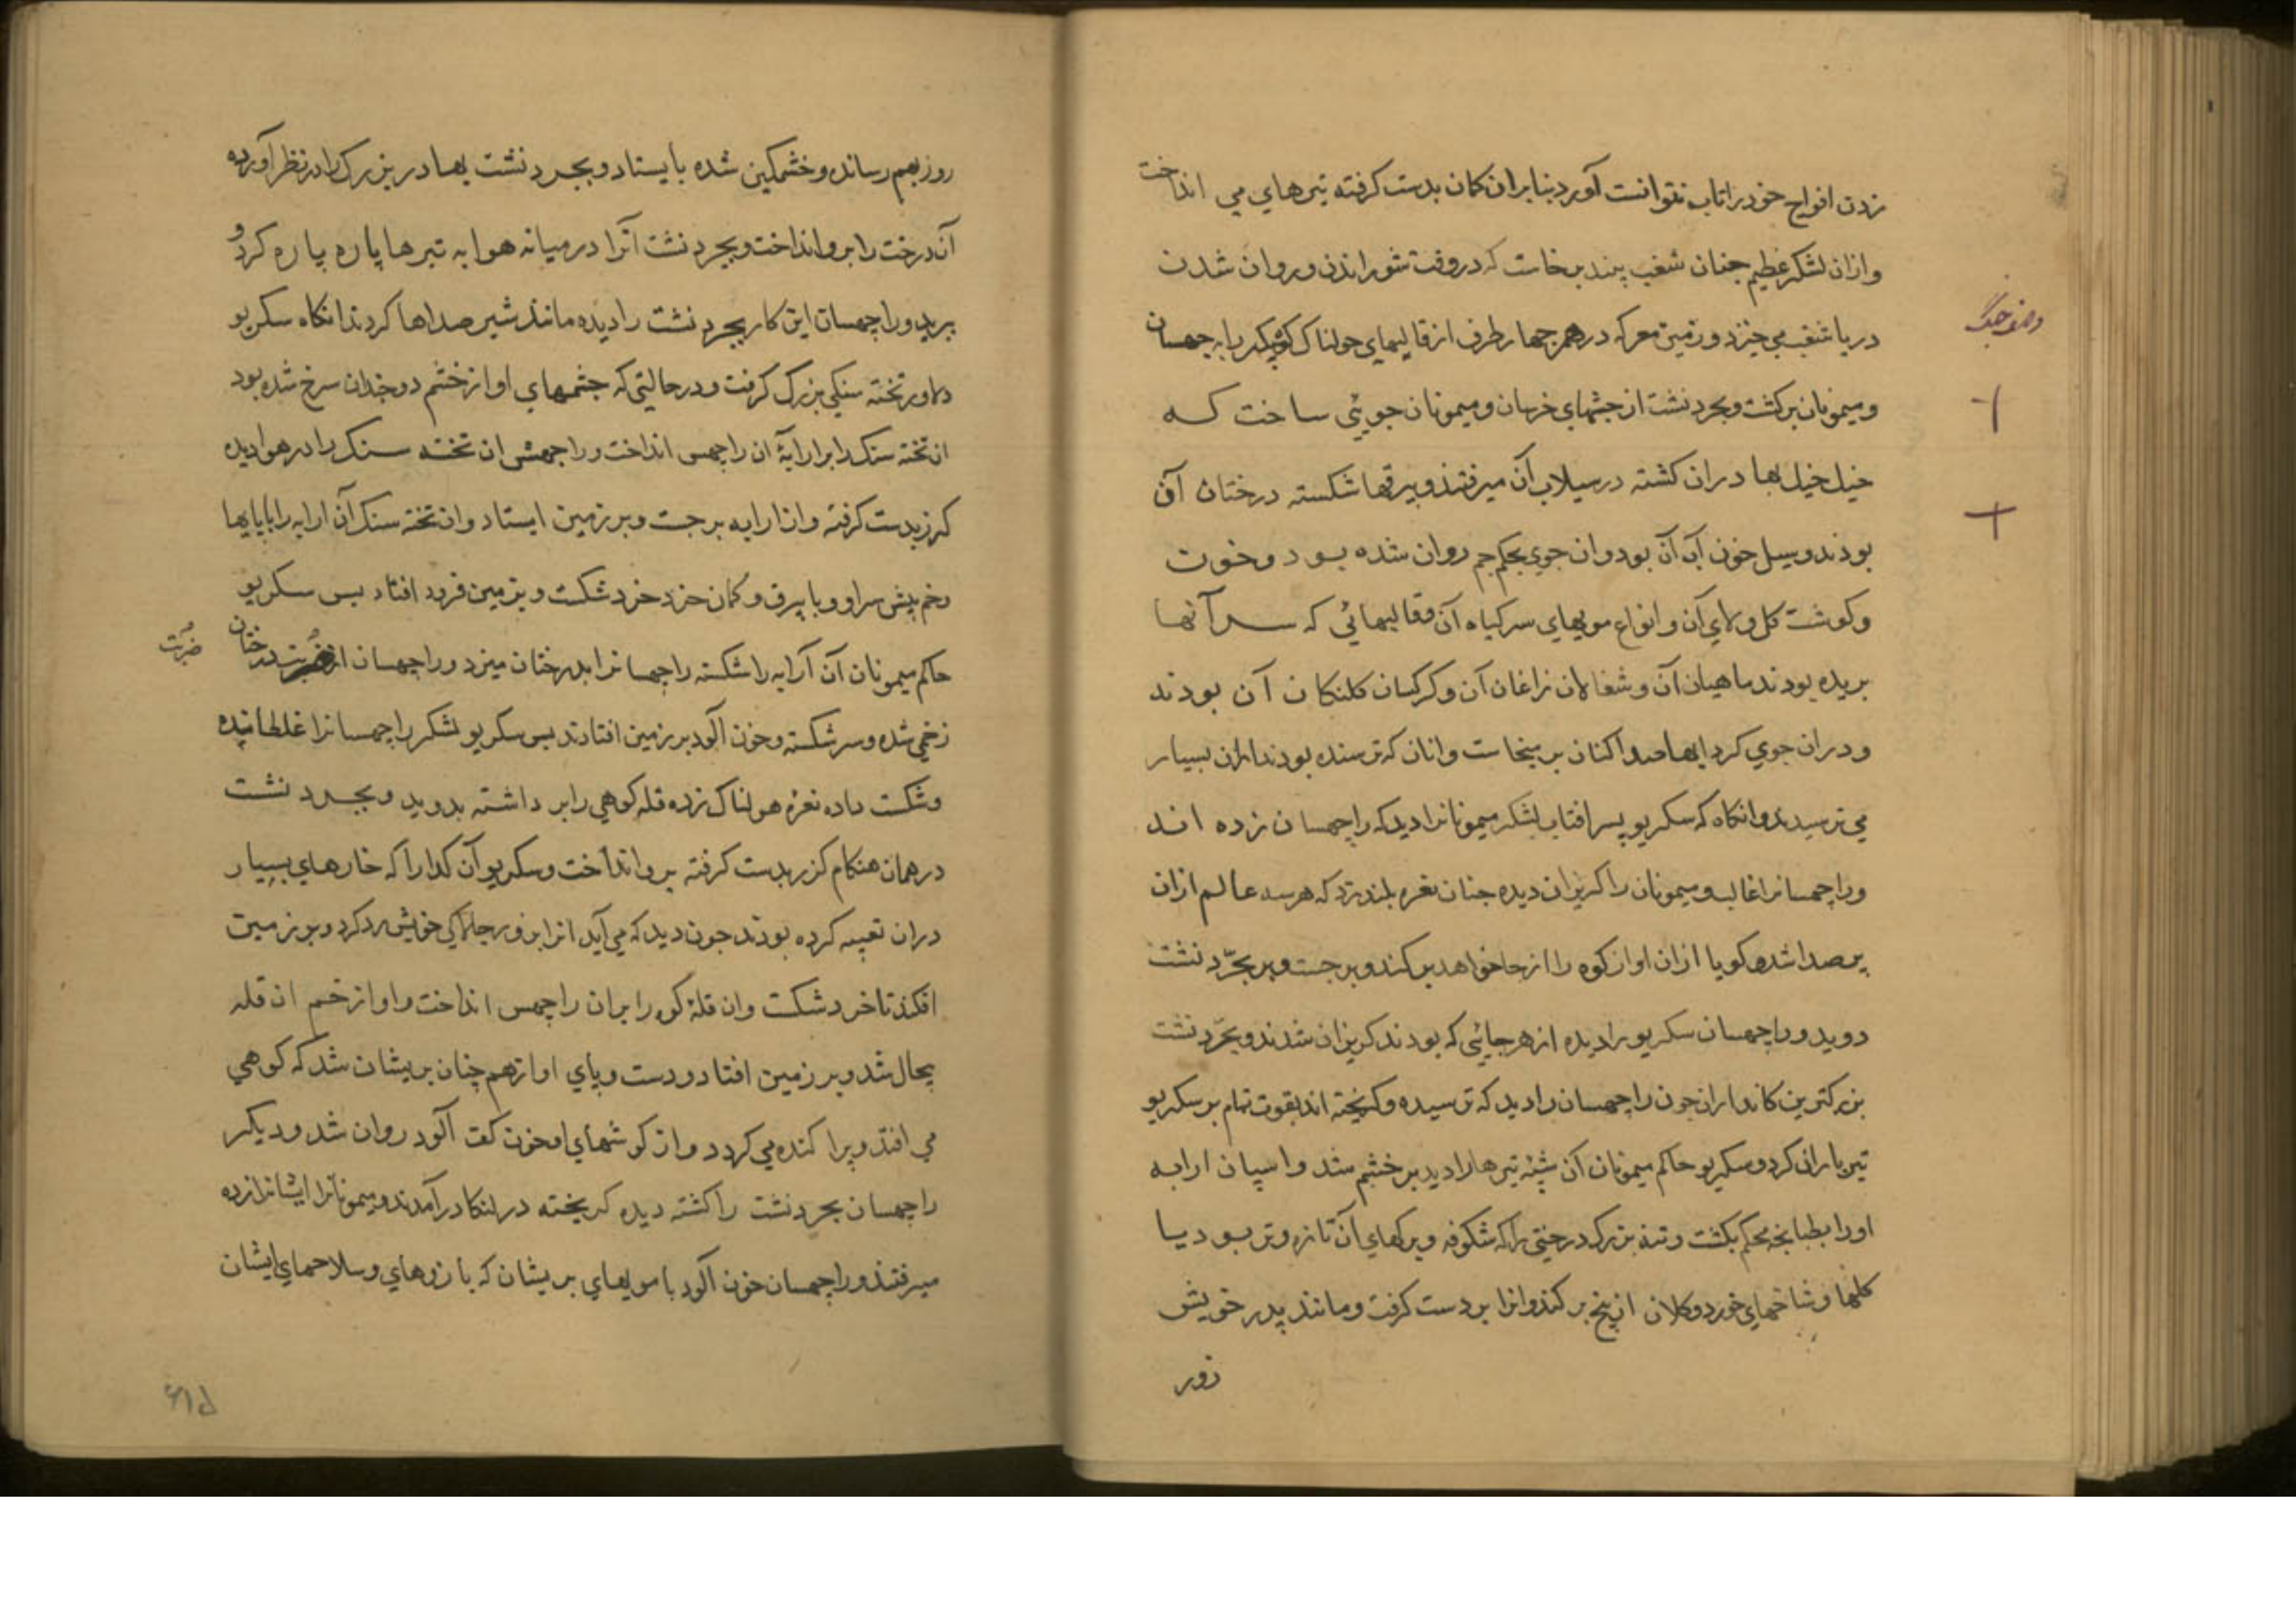 زدن افواج خود را تاب نتوانست آورد بنابران کمان بدست کرفته تیرهاي مي انداخت
وازان لشکر عظیم جنان شغب بلند برخاست که در وقت شوراندن و روان شدن
دریا شغب مي خیزد و زمین معرکه در هر جهار طرف از قالیهماي هولناک راجهسان
ومیمونان برکشت و بجردنشت از جشمهاي خرسان و میمونان جویئي ساخت که
خیل خیل بها دران کشته در سیلاب آن میرفتند و بیرقها شکسته درختان آن
بودند و سیل خون آب آن بود وان جوي بحکم جم روان شده بود و خون
وکوشت کل و لاي آن و انواع مویهاي سر کیاه آن و قالیهائي که سر آنها
بریده بودند ماهیان آن و شغالان زاغان آن و کرکسان کلنکان آن بودند
ودران جوي کردابها صدا کنان بر میخاست وانان که ترسنده بودند ازان بسیار
مي ترسیدند وانکاه که سکریو پسر افتاب لشکر میمونانرا دید که راجهسان زده اند
وراجهسانرا غالب و میمونان را کریزان دیده جنان نعره بلند زد که هر سه عالم ازان
پر صدا شد و کویا ازان اواز کوه را از جا خواهد بر کند و بر جست و بر بجّردنشت
دوید و راجهسان سکریو را دیده از هر جایئي که بودند کریزان شدند و بجّردنشت
بزرکترین کمانداران جون راجهسان را دید که ترسیده و کریخته اند بقوت تمام بر سکریو
تیر باراني کرد و سکریو حاکم میمونان آن پشته تیرها را دید بر خشم شد واسپان ارابه
اورا بطبانجه محکم بکشت و تنه بزرک درختي را که شکوفه و برکهاي آن تازه و تر بود با
کلها و شاخهاي خورد و کلان از بیخ بر کند وانرا بر دست کرفت و مانند پدر خویش
زور
روز بهم رسانده و خشمکین شده بایستاد و بجردنشت بهادر بزرک را در نظر آورده
آن درخت را بر و انداخت و بجردنشت آنرا در میانه هوا به تیرها پاره پاره کرد و
برید و راجهسان این کار بجردنشت را دیده مانند شیر صداها کردند انکاه سکریو
دلاور تخته سنکي بزرک کرفت و در حالیتي که جشمهاي او از خشم دو جندان سرخ شده بود
ان تخته سنک را بر ارابۀ ان راجهس انداخت و راجهس ان تخته سنک را در هوا دیده
کرز بدست کرفته وازارابه بر جست و بر زمین ایستاد وان تخته سنک آن ارابه را با پایها
وخم پیش سر او و با بیرق و کمان خرد خرد شکست و بزمین فرود افتاد بس سکریو
حاکم میمونان آن آرابه را شکسته راجهسانرا بدرختان میزد و راجهسان از ضربت درختان
ضربت
زخمي شده و سر شکسته و خون آلود بر زمین افتادند بس سکریو لشکر راجهسانرا غلطانیده
وشکست داده نعره هولناک زده قله کوهي را بر داشته بدوید و بجردنشت
در همان هنکام کرز بدست کرفته بر و انداخت و سکریو آن کدا را که خارهاي بسیار
دران تعبیه کرده بودند جون دید که مي آید انرا بزور جالاکي خویش رد کرد و بر زمین
افکند تا خرد شکست وان قلۀ کوه را بران راجهس انداخت و او از خم ان قله
بیحال شد و بر زمین افتاد و دست و پاي او از هم چنان بریشان شد که کوهي
مي افتد و پراکنده مي کردد و از کوشهاي او خون کف آلود روان شد و دیکر
راجهسان بجردنشت را کشته دیده کریخته در لنکا در آمدند و میمونانرا ایشانرا زده
میرفتند و راجهسان خون آلود با مویهاي بریشان که بازوهاي و سلاحهاي ایشان